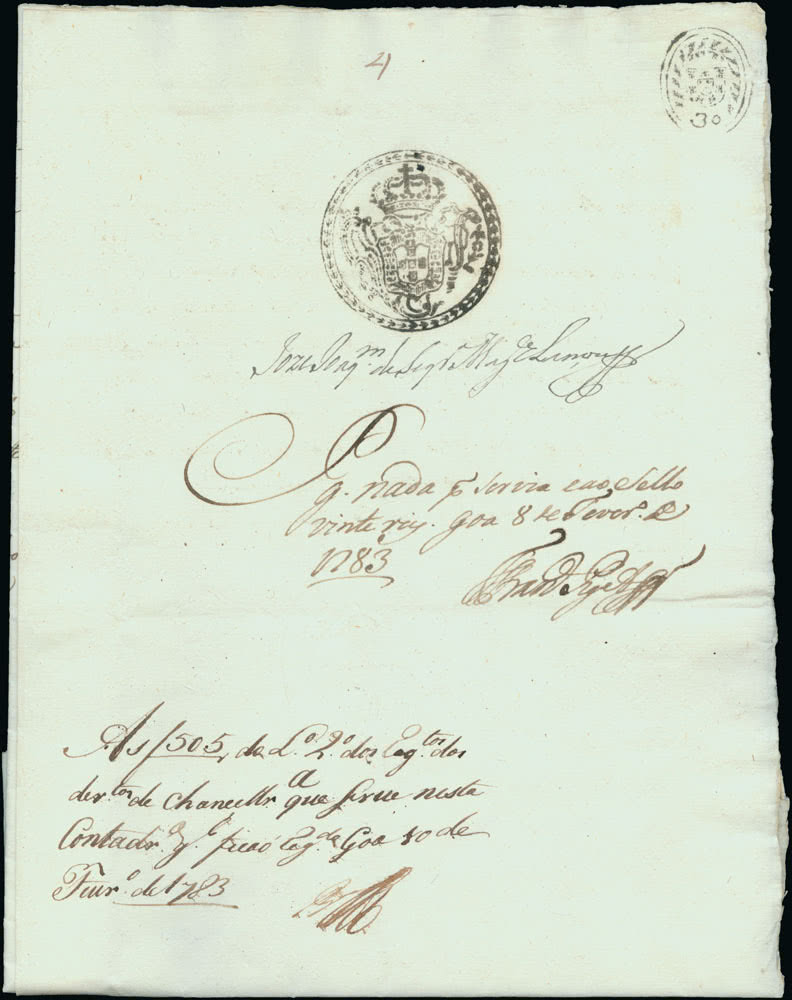 4
30
Joze Joaqm. de Seqra. Magce.
Pg. nada p servia e ao Sello
vinte reis. Goa 8 de Fever.o de
1783
As f 505, do L.o 2.o dos Reg.tos dos
der.tos de Chancellr.a que serve nesta
Contadr.a g.l ficão Reg.da Goa 10 de
Fevr.o de 1783